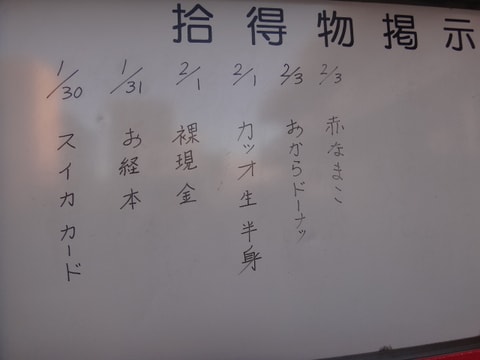 拾得物掲示
2/3 赤なまこ
2/3 おからドーナッ
2/1 カツオ生半身
2/1 裸現金
1/31 お経本
1/30 スイカカード